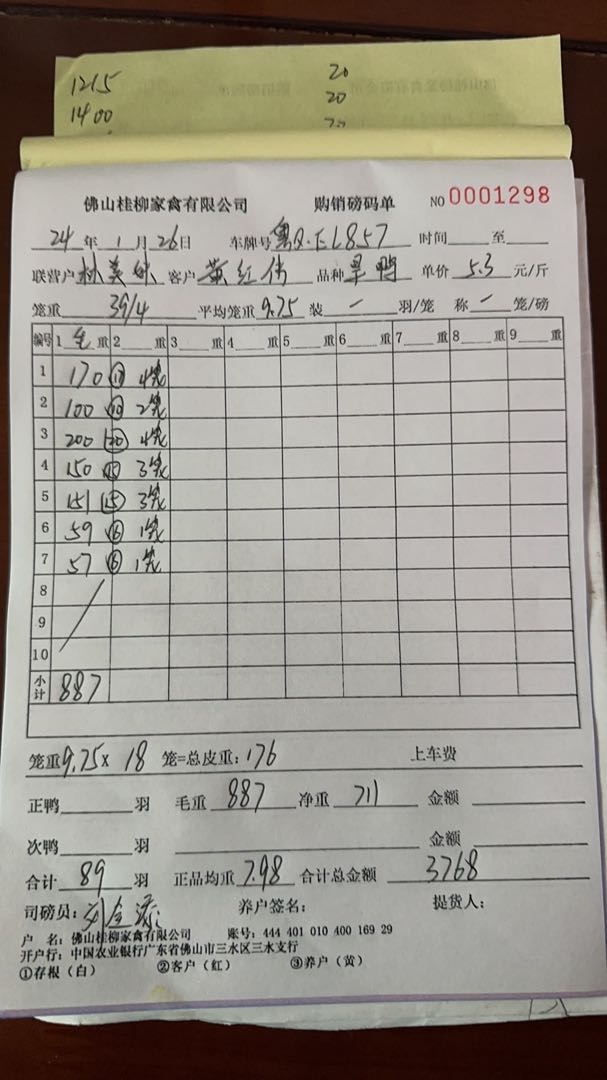 1215 20
1400 20
佛山桂柳家禽有限公司 购销磅码单 NO 0001298
24 年 1 月 26 日 车牌号 粤Q·FL857 时间 至
联营户 林美 客户 黄红伟 品种 旱鸭 单价 5.3 元/斤
笼重 39/4 平均笼重 9.75 装 一 羽/笼 称 一 笼/磅
编号 1 毛 重 2 重 3 重 4 重 5 重 6 重 7 重 8 重 9 重
1 170 17 4笼
2 100 10 2笼
3 200 20 4笼
4 150 15 3笼
5 151 15 3笼
6 59 6 1笼
7 57 6 1笼
8
9
10
小计 887
笼重 9.75 × 18 笼=总皮重: 176 上车费
正鸭 羽 毛重 887 净重 711 金额
次鸭 羽 金额
合计 89 羽 正品均重 7.98 合计总金额 3768
司磅员: 刘金添 养户签名: 提货人:
户 名: 佛山桂柳家禽有限公司 账号: 444 401 010 400 169 29
开户行: 中国农业银行广东省佛山市三水区三水支行
①存根(白) ②客户(红) ③养户(黄)